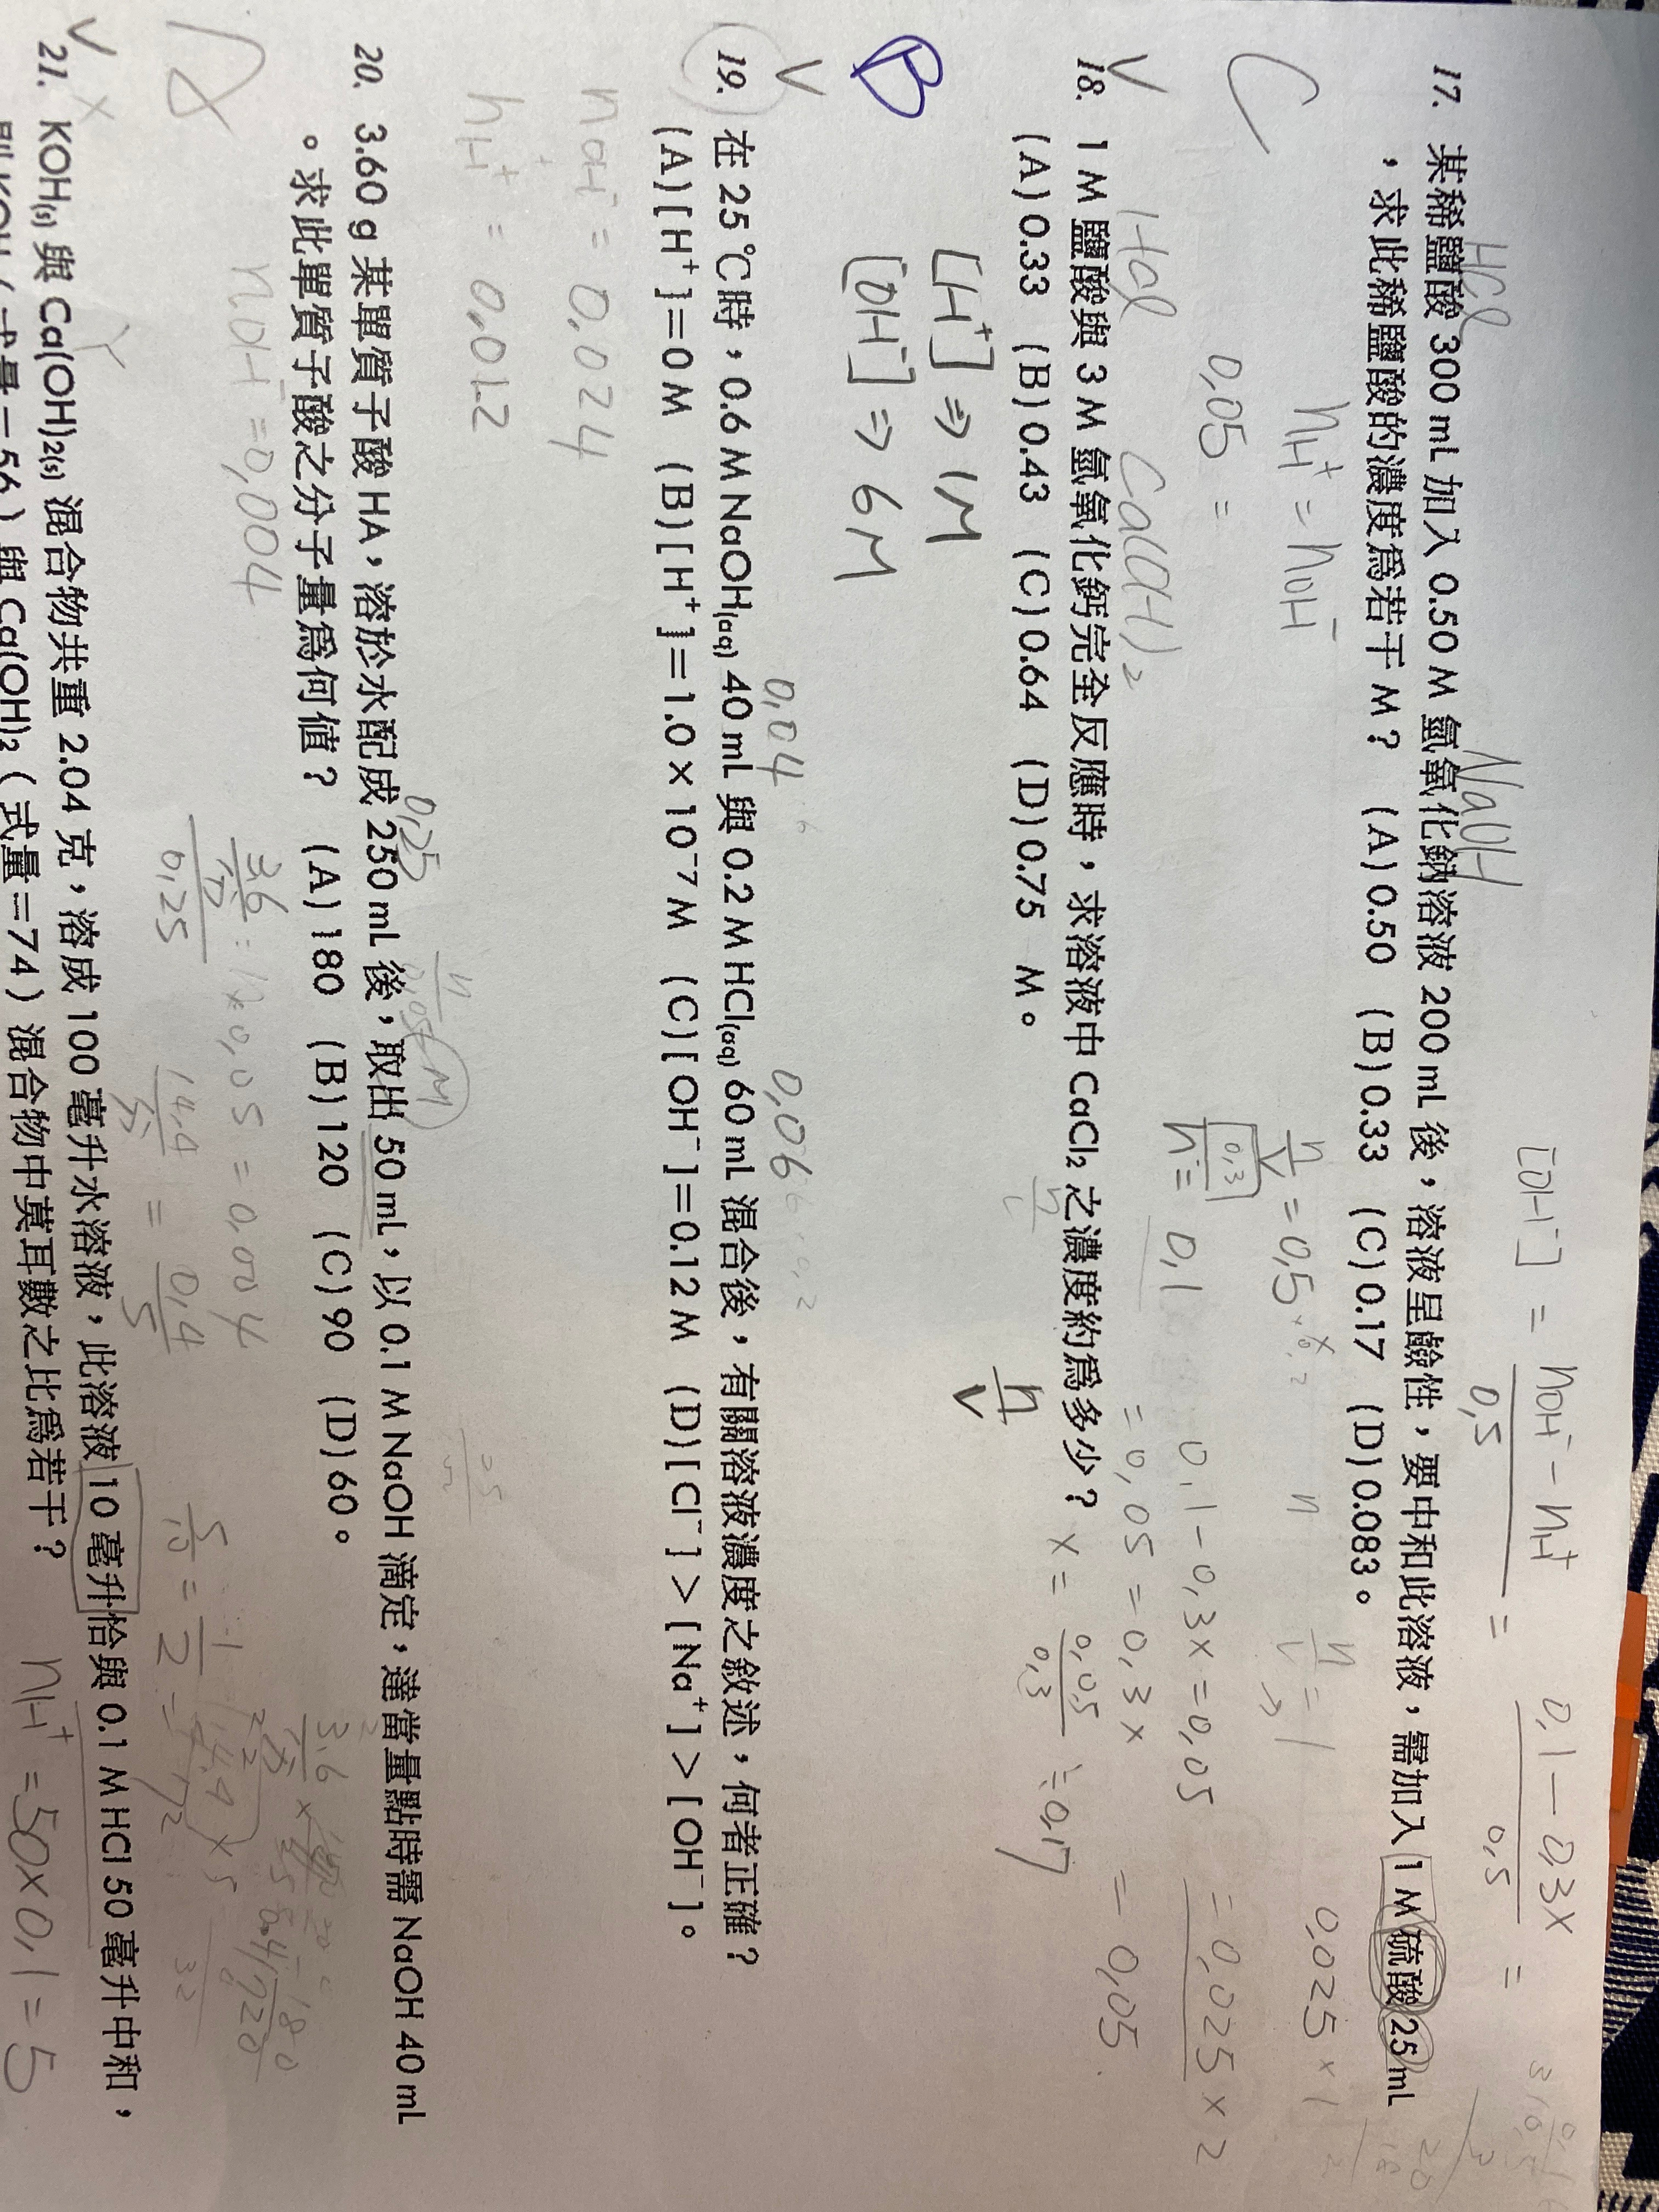 [OH⁻] = nOH⁻ - nH⁺ / 0.5 = 0.1 - 0.3x / 0.5 =
HCl NaOH
17. 某稀鹽酸 300 mL 加入 0.50 M 氫氧化鈉溶液 200 mL 後，溶液呈鹼性，要中和此溶液，需加入 1 M 硫酸 25 mL
，求此稀鹽酸的濃度為若干 M？ (A) 0.50 (B) 0.33 (C) 0.17 (D) 0.083。
C
nH⁺ = nOH⁻
n/V = 0.5 × 0.2
n/V = 1
0.025 × 1
0.05 =
n = 0.1
0.1 - 0.3x = 0.05
= 0.025 × 2
= 0.05 = 0.3x
= 0.05
HCl Ca(OH)₂
V 18. 1 M 鹽酸與 3 M 氫氧化鈣完全反應時，求溶液中 CaCl₂ 之濃度約為多少？
x = 0.05 / 0.3 ≒ 0.17
(A) 0.33 (B) 0.43 (C) 0.64 (D) 0.75 M。
n/V
B
[H⁺] ⇒ 1M
[OH⁻] ⇒ 6M
V
0.04 0.06
19. 在 25 ℃時，0.6 M NaOH(aq) 40 mL 與 0.2 M HCl(aq) 60 mL 混合後，有關溶液濃度之敘述，何者正確？
(A) [H⁺] = 0 M (B) [H⁺] = 1.0 × 10⁻⁷ M (C) [OH⁻] = 0.12 M (D) [Cl⁻] > [Na⁺] > [OH⁻]。
nOH⁻ = 0.024
nH⁺ = 0.012
0.25
20. 3.60 g 某單質子酸 HA，溶於水配成 250 mL 後，取出 50 mL，以 0.1 M NaOH 滴定，達當量點時需 NaOH 40 mL
。求此單質子酸之分子量為何值？ (A) 180 (B) 120 (C) 90 (D) 60。
nOH⁻ = 0.004
V 21. KOH(s) 與 Ca(OH)₂(s) 混合物共重 2.04 克，溶成 100 毫升水溶液，此溶液 10 毫升恰與 0.1 M HCl 50 毫升中和，
則 KOH（式量=56）與 Ca(OH)₂（式量=74）混合物中莫耳數之比為若干？
nH⁺ = 50 × 0.1 = 5